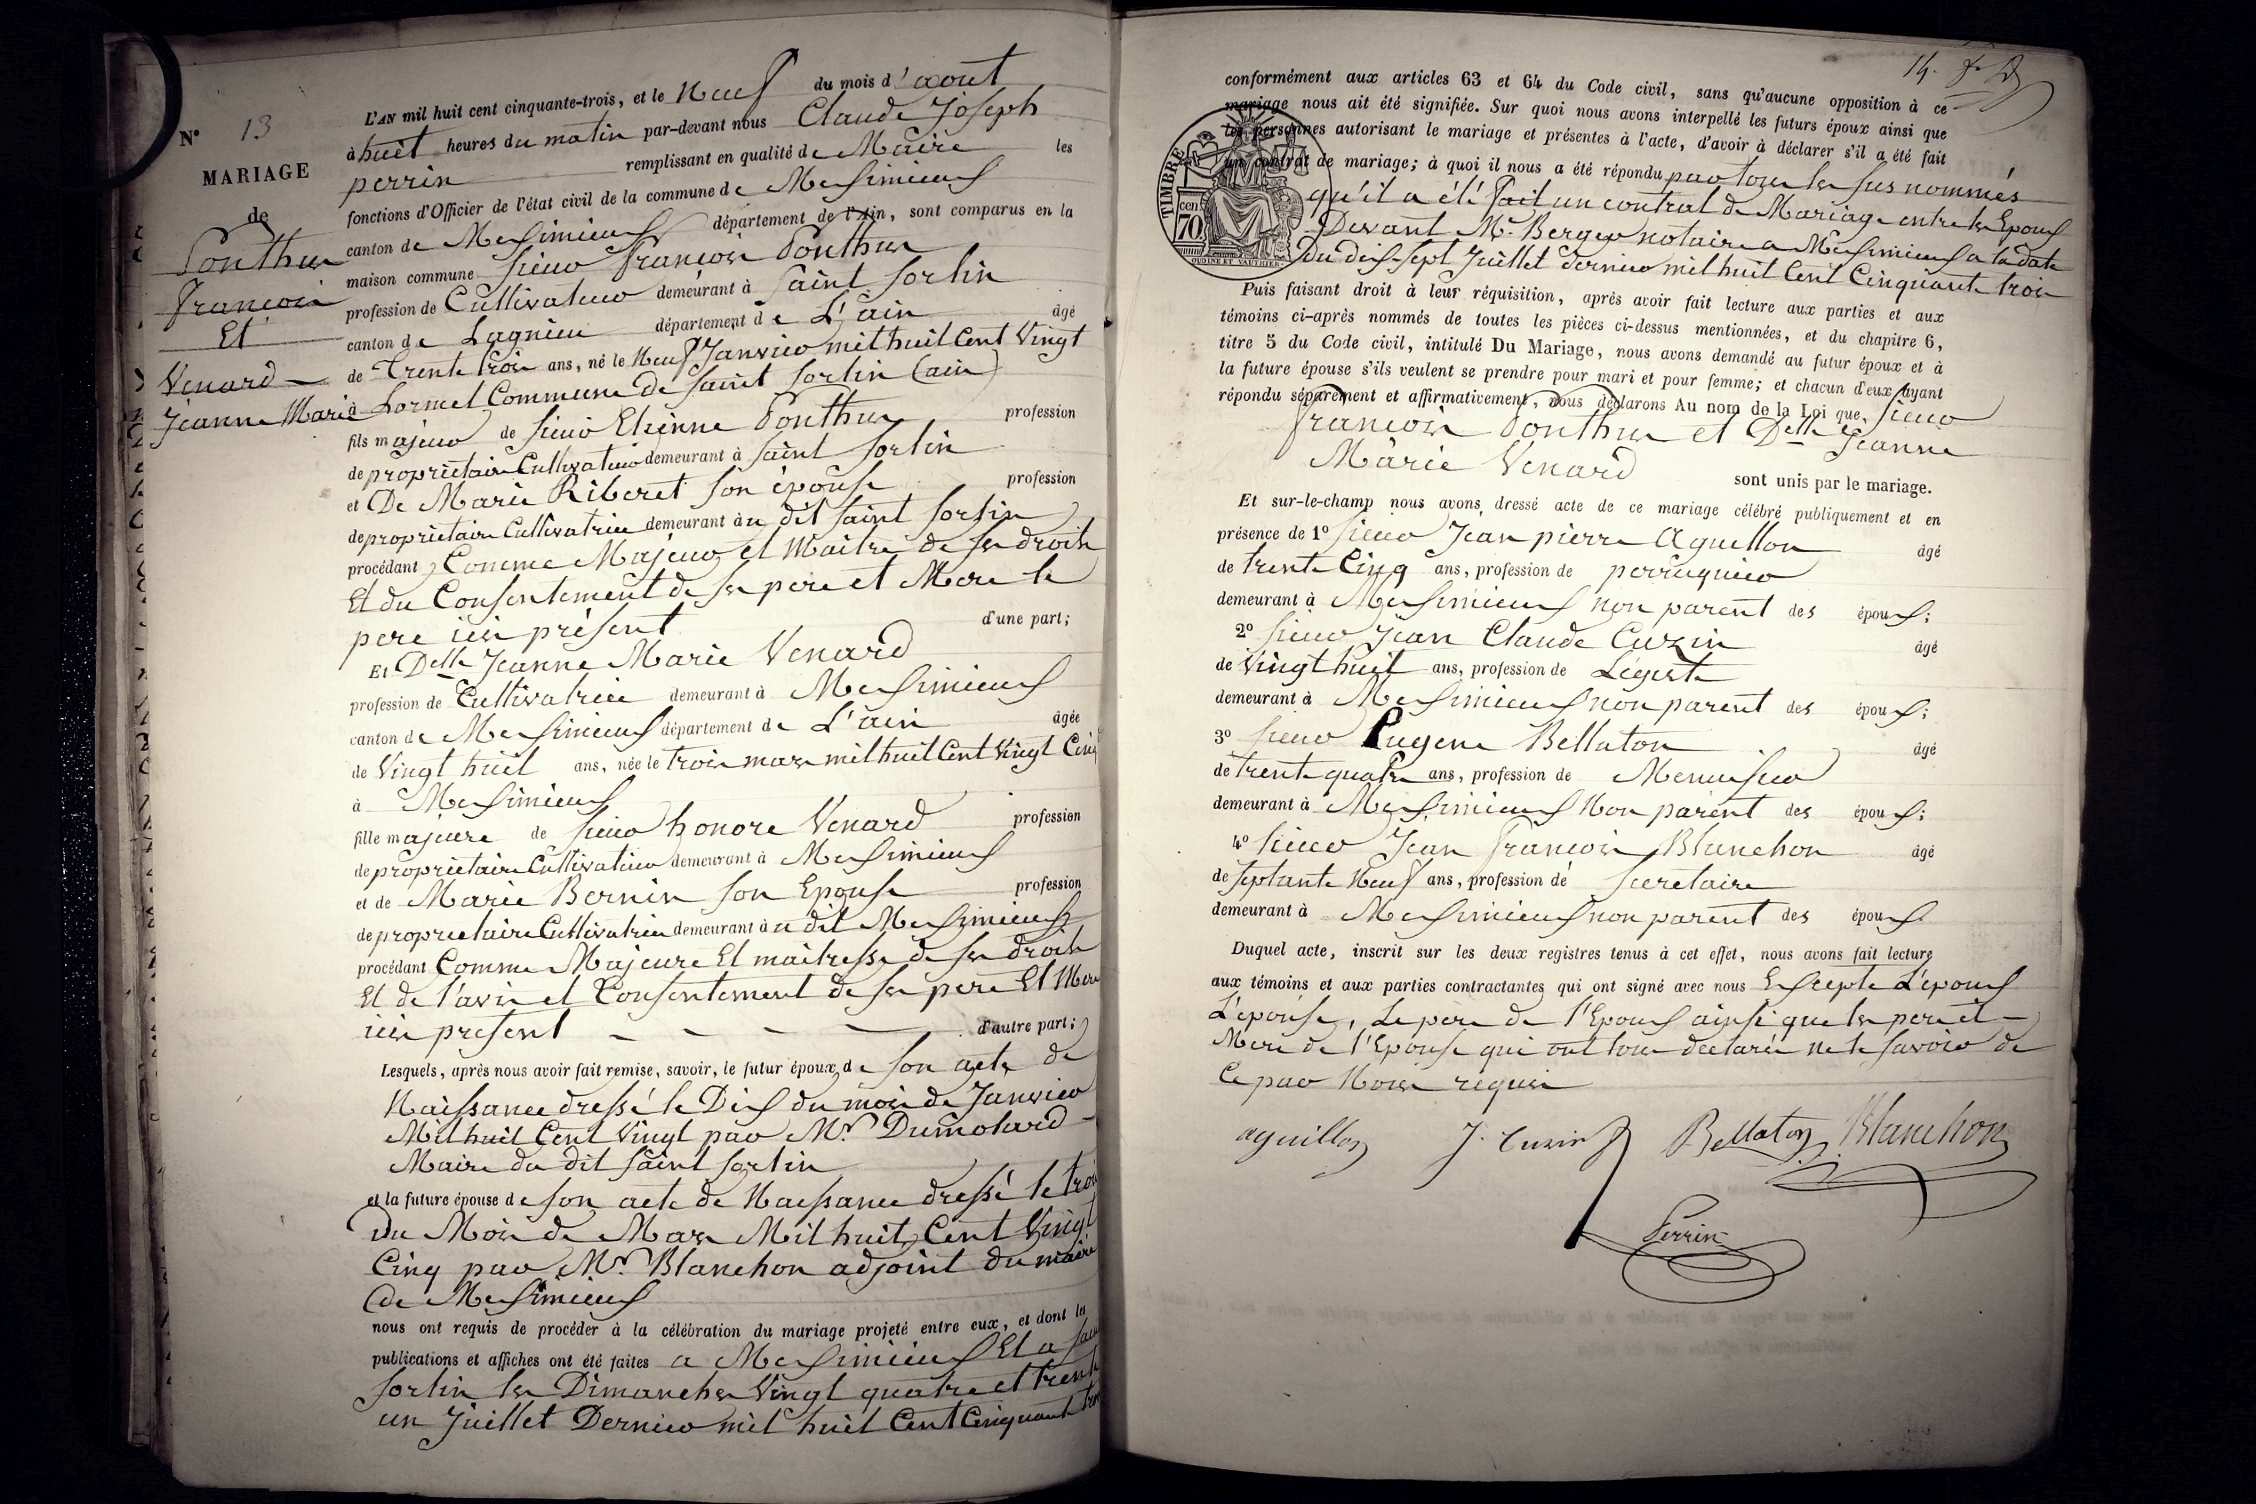 N° 13
MARIAGE
de
Ponthus
François
Et
Venard
Jeanne Marie
L'AN mil huit cent cinquante-trois, et le Neuf du mois d'aout
à huit heures du matin par-devant nous Claude Joseph
perrin remplissant en qualité de Maire les
fonctions d'Officier de l'état civil de la commune de Meximieux
canton de Meximieux département de l'Ain, sont comparus en la
maison commune sieur françois Ponthus
profession de Cultivateur demeurant à Saint Sorlin
canton de Lagnieu département de L'ain âgé
de Trente trois ans, né le Neuf Janvier mil huit Cent Vingt
à Lormet Commune de Saint Sorlin (ain)
fils majeur de sieur Etienne Ponthus profession
de propriétaire Cultivateur demeurant à Saint Sorlin
et De Marie Riberet son épouse profession
de propriétaire Cultivatrice demeurant au dit Saint Sorlin
procédant Comme Majeur et Maitre de ses droits
Et du Consentement de ses pere et Mere le
pere ici présent d'une part;
Et Delle Jeanne Marie Venard
profession de Cultivatrice demeurant à Meximieux
canton de Meximieux département de L'ain âgée
de Vingt huit ans, née le trois mars mil huit Cent Vingt Cinq
à Meximieux
fille majeure de sieur honore Venard profession
de propriétaire Cultivateur demeurant à Meximieux
et de Marie Bernin son Epouse profession
de propriétaire Cultivatrice demeurant au dit Meximieux
procédant Comme Majeure Et maitresse de ses droits
Et de l'avis et Consentement de ses pere Et Mere
ici présent d'autre part;
Lesquels, après nous avoir fait remise, savoir, le futur époux de son acte de
Naissance dressé le Dix du mois de Janvier
Mil huit Cent Vingt par Mr. Dumolard
Maire du dit Saint Sorlin
et la future épouse de son acte de Naissance dressé le trois
du Mois de Mars Mil huit Cent Vingt
Cinq par Mr. Blanchon adjoint du maire
de Meximieux
nous ont requis de procéder à la célébration du mariage projeté entre eux, et dont les
publications et affiches ont été faites a Meximieux Et a
Sorlin les Dimanches Vingt quatre et trente
un Juillet Dernier mil huit Cent Cinquante trois
14.
conformément aux articles 63 et 64 du Code civil, sans qu'aucune opposition à ce
mariage nous ait été signifiée. Sur quoi nous avons interpellé les futurs époux ainsi que
les personnes autorisant le mariage et présentes à l'acte, d'avoir à déclarer s'il a été fait
un contrat de mariage; à quoi il nous a été répondu par tous les sus nommés
qu'il a été fait un contrat de Mariage entre les Epoux
Devant Me. Berger notaire a Meximieux a la date
Du dix-sept Juillet dernier mil huit Cent Cinquante trois
TIMBRE
cen
70
OUDINE ET VAUTHIER
Puis faisant droit à leur réquisition, après avoir fait lecture aux parties et aux
témoins ci-après nommés de toutes les pièces ci-dessus mentionnées, et du chapitre 6,
titre 5 du Code civil, intitulé Du Mariage, nous avons demandé au futur époux et à
la future épouse s'ils veulent se prendre pour mari et pour femme; et chacun d'eux ayant
répondu séparément et affirmativement, nous déclarons Au nom de la Loi que Sieur
françois Ponthus et Delle Jeanne
Marie Venard sont unis par le mariage.
Et sur-le-champ nous avons dressé acte de ce mariage célébré publiquement et en
présence de 1° Sieur Jean pierre Aguillon âgé
de trente Cinq ans, profession de perruquier
demeurant à Meximieux non parent des époux;
2° Sieur Jean Claude Cuzin âgé
de Vingt huit ans, profession de Légiste
demeurant à Meximieux non parent des époux;
3° Sieur Eugene Bellaton âgé
de trente quatre ans, profession de Menuisier
demeurant à Meximieux Non parent des époux;
4° Sieur Jean François Blanchon âgé
de Septante Neuf ans, profession de Secretaire
demeurant à Meximieux non parent des époux
Duquel acte, inscrit sur les deux registres tenus à cet effet, nous avons fait lecture
aux témoins et aux parties contractantes qui ont signé avec nous Excepte L'époux
L'épouse, Le pere de l'Epoux ainsi que les pere et
Mere de l'Epouse qui ont tous declarés ne le savoir de
Ce par Nous requis
aguillon J. Cuzin Bellaton Blanchon
Perrin